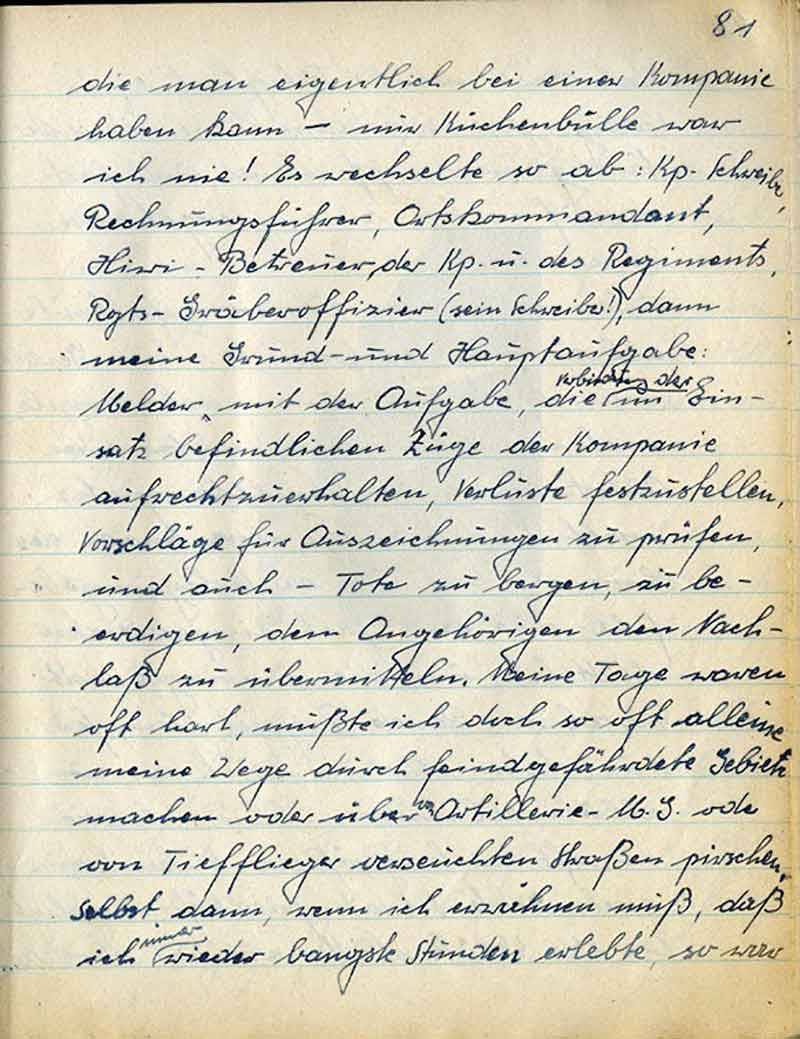 81
die man eigentlich bei einer Kompanie
haben kann – nur Küchenbülle war
ich nie! Es wechselte so ab: Kp.-Schreiber,
Rechnungsführer, Ortskommandant,
Hiwi-Betreuer der Kp. u. des Regiments,
Rgts-Gräberoffizier (sein Schreiber!), dann
meine Grund- und Hauptaufgabe:
Melder, mit der Aufgabe, die Verbindung der im Ein-
satz befindlichen Züge der Kompanie
aufrechtzuerhalten, Verluste festzustellen,
Vorschläge für Auszeichnungen zu prüfen,
und auch – Tote zu bergen, zu be-
erdigen, den Angehörigen den Nach-
laß zu übermitteln. Meine Tage waren
oft hart, mußte ich doch so oft alleine
meine Wege durch feindgefährdete Gebiete
machen oder über von Artillerie- M.G. ode
von Tiefflieger verseuchten Straßen pirschen,
selbst dann, wenn ich erwähnen muß, daß
ich immer wieder bangste Stunden erlebte, so war